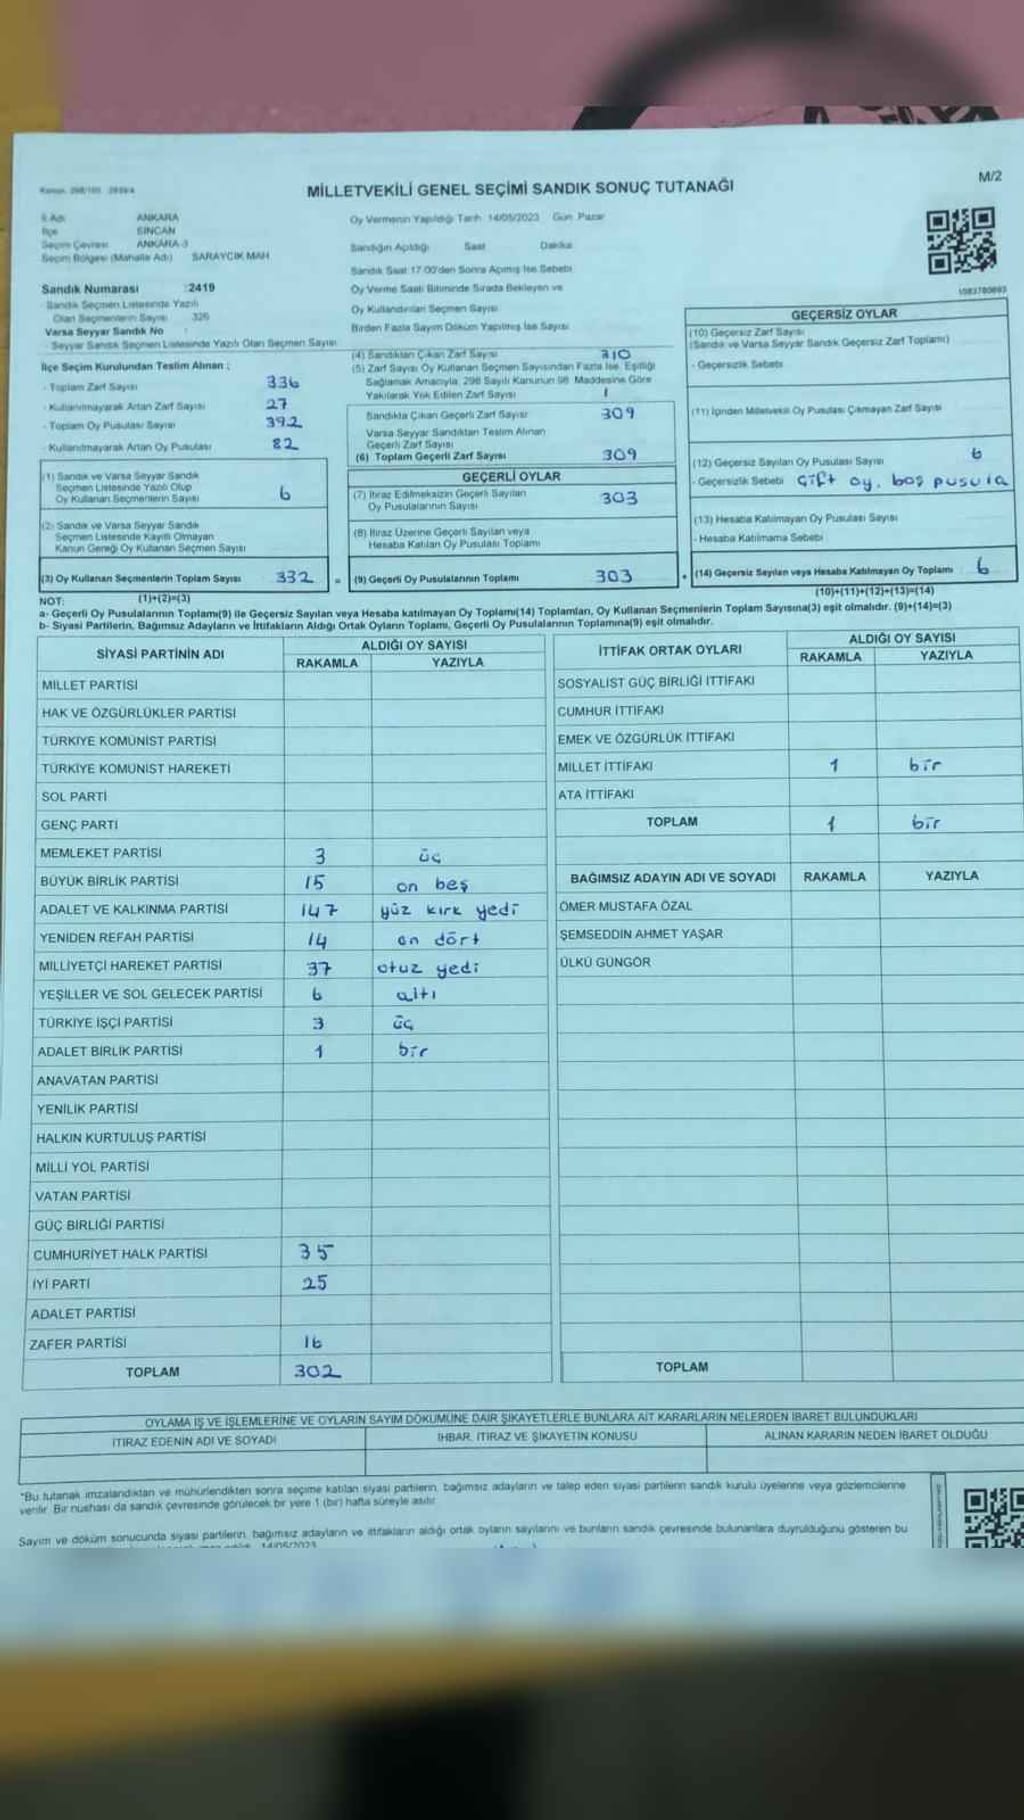 M/2
MİLLETVEKİLİ GENEL SEÇİMİ SANDIK SONUÇ TUTANAĞI
İl Adı ANKARA
İlçe SİNCAN
Seçim Çevresi ANKARA-3
Seçim Bölgesi (Mahalle Adı) SARAYCIK MAH
Oy Vermenin Yapıldığı Tarih 14/05/2023 Gün Pazar
Sandığın Açıldığı Saat Dakika
Sandık Saat 17.00'den Sonra Açılmış İse Sebebi
Oy Verme Saati Bitiminde Sırada Bekleyen ve
Oy Kullandırılan Seçmen Sayısı
Birden Fazla Sayım Döküm Yapılmış İse Sayısı
Sandık Numarası :2419
Sandık Seçmen Listesinde Yazılı
Olan Seçmenlerin Sayısı 326
Varsa Seyyar Sandık No
Seyyar Sandık Seçmen Listesinde Yazılı Olan Seçmen Sayısı
İlçe Seçim Kurulundan Teslim Alınan ;
- Toplam Zarf Sayısı 336
- Kullanılmayarak Artan Zarf Sayısı 27
- Toplam Oy Pusulası Sayısı 392
- Kullanılmayarak Artan Oy Pusulası 82
(1) Sandık ve Varsa Seyyar Sandık
Seçmen Listesinde Yazılı Olup
Oy Kullanan Seçmenlerin Sayısı 6
(2) Sandık ve Varsa Seyyar Sandık
Seçmen Listesinde Kayıtlı Olmayan
Kanun Gereği Oy Kullanan Seçmen Sayısı
(3) Oy Kullanan Seçmenlerin Toplam Sayısı 332 =
(4) Sandıktan Çıkan Zarf Sayısı 310
(5) Zarf Sayısı Oy Kullanan Seçmen Sayısından Fazla İse, Eşitliği
Sağlamak Amacıyla, 298 Sayılı Kanunun 98. Maddesine Göre
Yakılarak Yok Edilen Zarf Sayısı 1
Sandıkta Çıkan Geçerli Zarf Sayısı 309
Varsa Seyyar Sandıktan Teslim Alınan
Geçerli Zarf Sayısı
(6) Toplam Geçerli Zarf Sayısı 309
GEÇERLİ OYLAR
(7) İtiraz Edilmeksizin Geçerli Sayılan
Oy Pusulalarının Sayısı 303
(8) İtiraz Üzerine Geçerli Sayılan veya
Hesaba Katılan Oy Pusulası Toplamı
(9) Geçerli Oy Pusulalarının Toplamı 303
GEÇERSİZ OYLAR
(10) Geçersiz Zarf Sayısı
(Sandık ve Varsa Seyyar Sandık Geçersiz Zarf Toplamı)
- Geçersizlik Sebebi
(11) İçinden Milletvekili Oy Pusulası Çıkmayan Zarf Sayısı
(12) Geçersiz Sayılan Oy Pusulası Sayısı 6
- Geçersizlik Sebebi Çift oy, boş pusula
(13) Hesaba Katılmayan Oy Pusulası Sayısı
- Hesaba Katılmama Sebebi
(14) Geçersiz Sayılan veya Hesaba Katılmayan Oy Toplamı 6
NOT: (1)+(2)=(3) (10)+(11)+(12)+(13)=(14)
a- Geçerli Oy Pusulalarının Toplamı(9) ile Geçersiz Sayılan veya Hesaba katılmayan Oy Toplamı(14) Toplamları, Oy Kullanan Seçmenlerin Toplam Sayısına(3) eşit olmalıdır. (9)+(14)=(3)
b- Siyasi Partilerin, Bağımsız Adayların ve İttifakların Aldığı Ortak Oyların Toplamı, Geçerli Oy Pusulalarının Toplamına(9) eşit olmalıdır.
SİYASİ PARTİNİN ADI ALDIĞI OY SAYISI
RAKAMLA YAZIYLA
MİLLET PARTİSİ
HAK VE ÖZGÜRLÜKLER PARTİSİ
TÜRKİYE KOMÜNİST PARTİSİ
TÜRKİYE KOMÜNİST HAREKETİ
SOL PARTİ
GENÇ PARTİ
MEMLEKET PARTİSİ 3 üç
BÜYÜK BİRLİK PARTİSİ 15 on beş
ADALET VE KALKINMA PARTİSİ 147 yüz kırk yedi
YENİDEN REFAH PARTİSİ 14 on dört
MİLLİYETÇİ HAREKET PARTİSİ 37 otuz yedi
YEŞİLLER VE SOL GELECEK PARTİSİ 6 altı
TÜRKİYE İŞÇİ PARTİSİ 3 üç
ADALET BİRLİK PARTİSİ 1 bir
ANAVATAN PARTİSİ
YENİLİK PARTİSİ
HALKIN KURTULUŞ PARTİSİ
MİLLİ YOL PARTİSİ
VATAN PARTİSİ
GÜÇ BİRLİĞİ PARTİSİ
CUMHURİYET HALK PARTİSİ 35
İYİ PARTİ 25
ADALET PARTİSİ
ZAFER PARTİSİ 16
TOPLAM 302
İTTİFAK ORTAK OYLARI ALDIĞI OY SAYISI
RAKAMLA YAZIYLA
SOSYALİST GÜÇ BİRLİĞİ İTTİFAKI
CUMHUR İTTİFAKI
EMEK VE ÖZGÜRLÜK İTTİFAKI
MİLLET İTTİFAKI 1 bir
ATA İTTİFAKI
TOPLAM 1 bir
BAĞIMSIZ ADAYIN ADI VE SOYADI RAKAMLA YAZIYLA
ÖMER MUSTAFA ÖZAL
ŞEMSEDDİN AHMET YAŞAR
ÜLKÜ GÜNGÖR
TOPLAM
OYLAMA İŞ VE İŞLEMLERİNE VE OYLARIN SAYIM DÖKÜMÜNE DAİR ŞİKAYETLERLE BUNLARA AİT KARARLARIN NELERDEN İBARET BULUNDUKLARI
İTİRAZ EDENİN ADI VE SOYADI İHBAR, İTİRAZ VE ŞİKAYETİN KONUSU ALINAN KARARIN NEDEN İBARET OLDUĞU
"Bu tutanak imzalandıktan ve mühürlendikten sonra seçime katılan siyasi partilerin, bağımsız adayların ve talep eden siyasi partilerin sandık kurulu üyelerine veya gözlemcilerine
verilir. Bir nüshası da sandık çevresinde görülecek bir yere 1 (bir) hafta süreyle asılır.
Sayım ve döküm sonucunda siyasi partilerin, bağımsız adayların ve ittifakların aldığı ortak oyların sayılarını ve bunların sandık çevresinde bulunanlara duyrulduğunu gösteren bu
14/05/2023